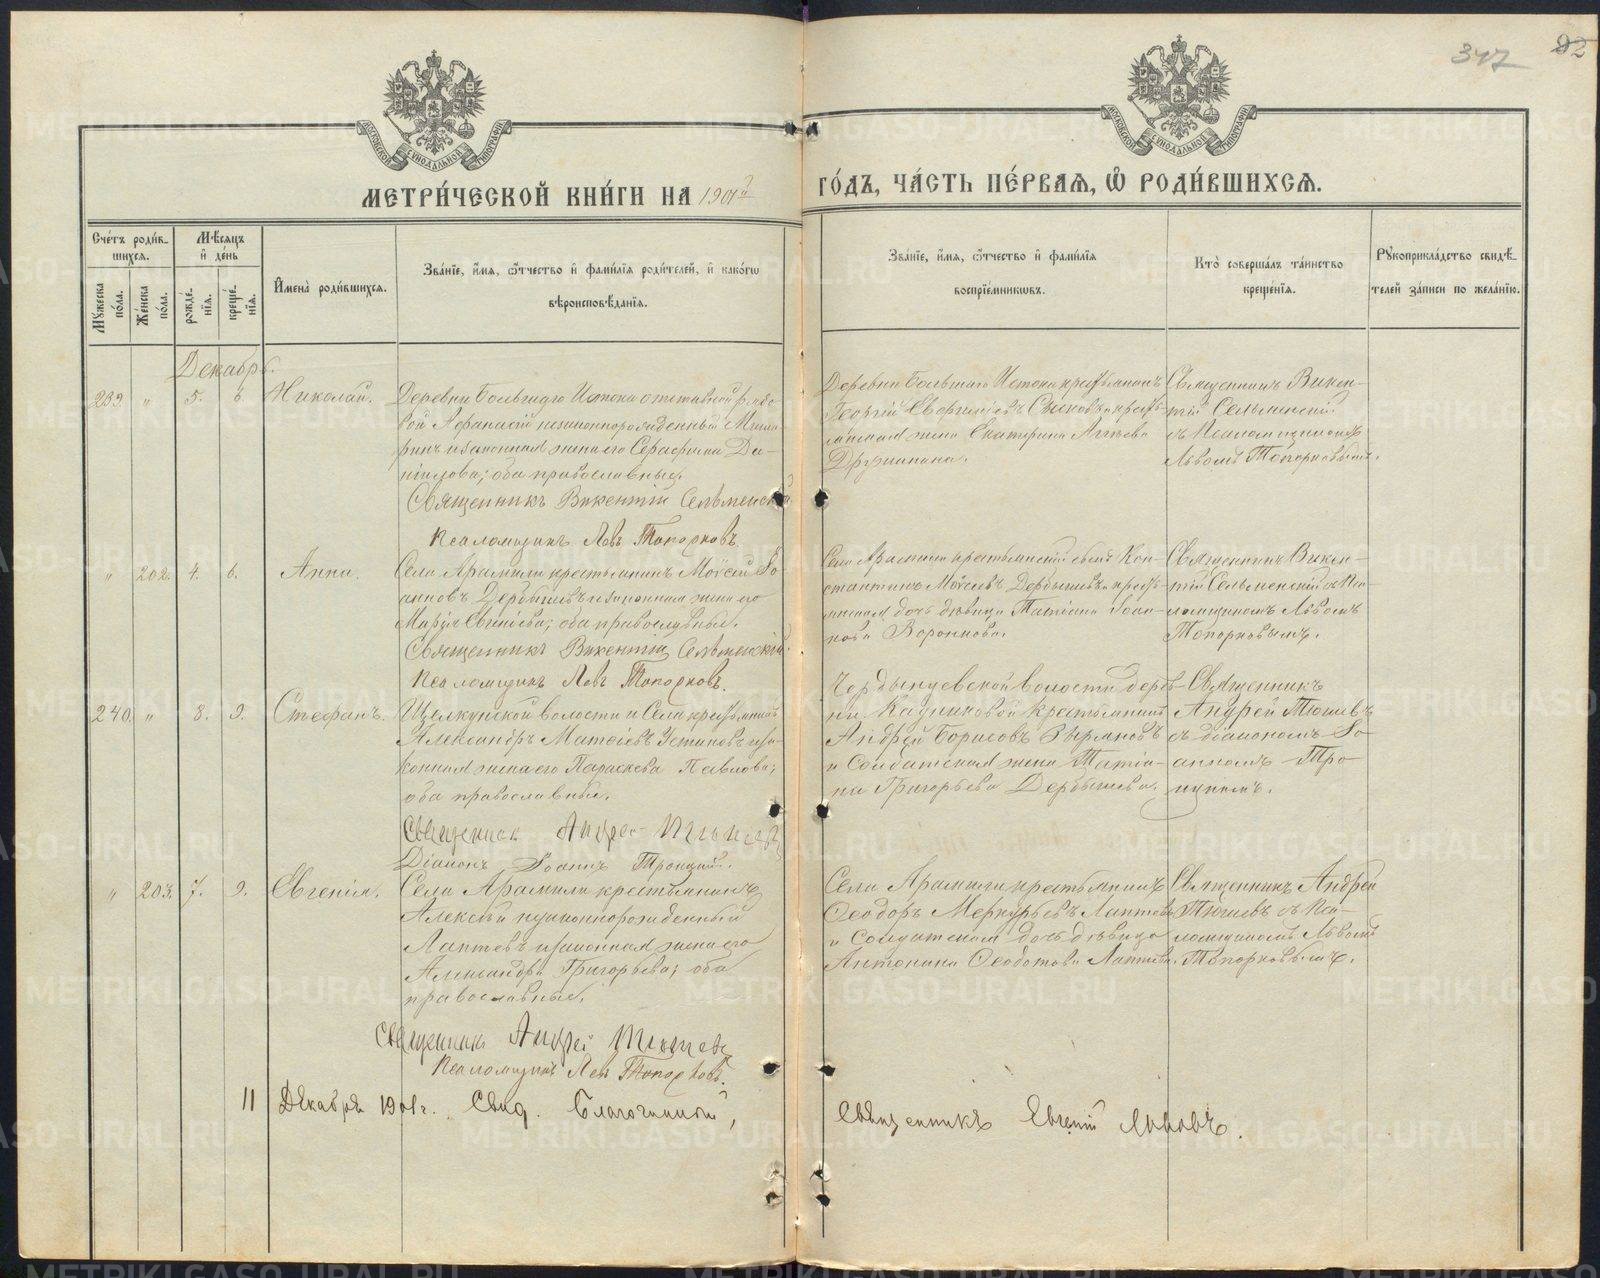 347 92
МОСКОВСКОЙ СУНОДАЛЬНОЙ ТИПОГРАФІИ
МОСКОВСКОЙ СУНОДАЛЬНОЙ ТИПОГРАФІИ
МЕТРИ́ЧЕСКОЙ КНИ́ГИ НА 1901й ГО́ДЪ, ЧА́СТЬ ПЕ́РВАЯ, Ѽ РОДИ́ВШИХСЯ.
Сче́тъ роди́в-
шихся.
Му́жеска по́ла.
Же́нска по́ла.
Мѣсяцъ и҆ де́нь
рожде́нїя.
креще́нїя.
И҆мена̀ роди́вшихся.
Зва́нїе, и҆́мя, ѻ҆́тчество и҆ фами́лїя роди́телей, и҆ како́гѡ
вѣроисповѣ́данїя.
Зва́нїе, и҆́мя, ѻ҆́тчество и҆ фами́лїя
воспрїе́мникѡвъ.
Кто̀ соверша́лъ та́инство
креще́нїя.
Рꙋкоприкла́дство свидѣ́-
телей за́писи по жела́нїю.
Декабрь.
239. " 5. 6 Николай.
Деревни Большаго Истока отставной рядо-
вой Афанасій незаконнорожденный Мила-
ринъ и законная жена его Серафима Да-
ніилова; оба православные.
Священникъ Викентій Сельменскій
Псаломщикъ Левъ Топорковъ.
Деревни Большаго Истока крестьянинъ
Георгій Сысковъ и кресть-
янская жена Екатерина
Священникъ Викен-
тій Сельменскій
съ Псаломщикомъ
Львомъ Топорковымъ.
" 202. 4. 6. Анна.
Села Арамили крестьянинъ Моѵсей Іо-
анновъ Дербышевъ и законная жена его
Марія Евгеніева; оба православные.
Священникъ Викентій Сельменскій
Псаломщикъ Левъ Топорковъ.
Села Арамили крестьянскій сынъ Кон-
стантинъ Моѵсеевъ Дербышевъ и кресть-
янская дочь дѣвица Татіана Іоан-
нова Воронкова.
Священникъ Викен-
тій Сельменскій съ Пса-
ломщикомъ Львомъ
Топорковымъ.
240. " 8. 9. Стефанъ.
Щелкунской волости и Села крестьянинъ
Александръ Матѳіевъ Устиновъ и за-
конная жена его Параскева Павлова;
оба православные.
Священник Андрей
Діаконъ Іоаннъ Троицкій.
волости дерев-
ни Кадниковой крестьянинъ
Андрей Борисовъ Зыряновъ
и Солдатская жена Татіа-
на Григорьева Дербышева.
Священникъ
Андрей Тюшевъ
съ діакономъ Іо-
анномъ Тро-
ицкимъ.
" 203. 7. 9. Евгенія.
Села Арамили крестьянинъ
Алексѣй незаконнорожденный
Лаптевъ и законная жена его
Александра Григорьева; оба
православные.
Священникъ Андрей Тюшевъ
Псаломщикъ Левъ Топорковъ.
Села Арамили крестьянинъ
Ѳеодоръ Меркурьевъ Лаптевъ
и Солдатская дочь дѣвица
Антонина Ѳеодотова Лаптева.
Священникъ Андрей
Тюшевъ съ Пса-
ломщикомъ Львомъ
Топорковымъ.
11 Декабря 1901 г. Свид. Благочинный, Священникъ Евгеній Львовъ.
METRIKI.GASO-URAL.RU